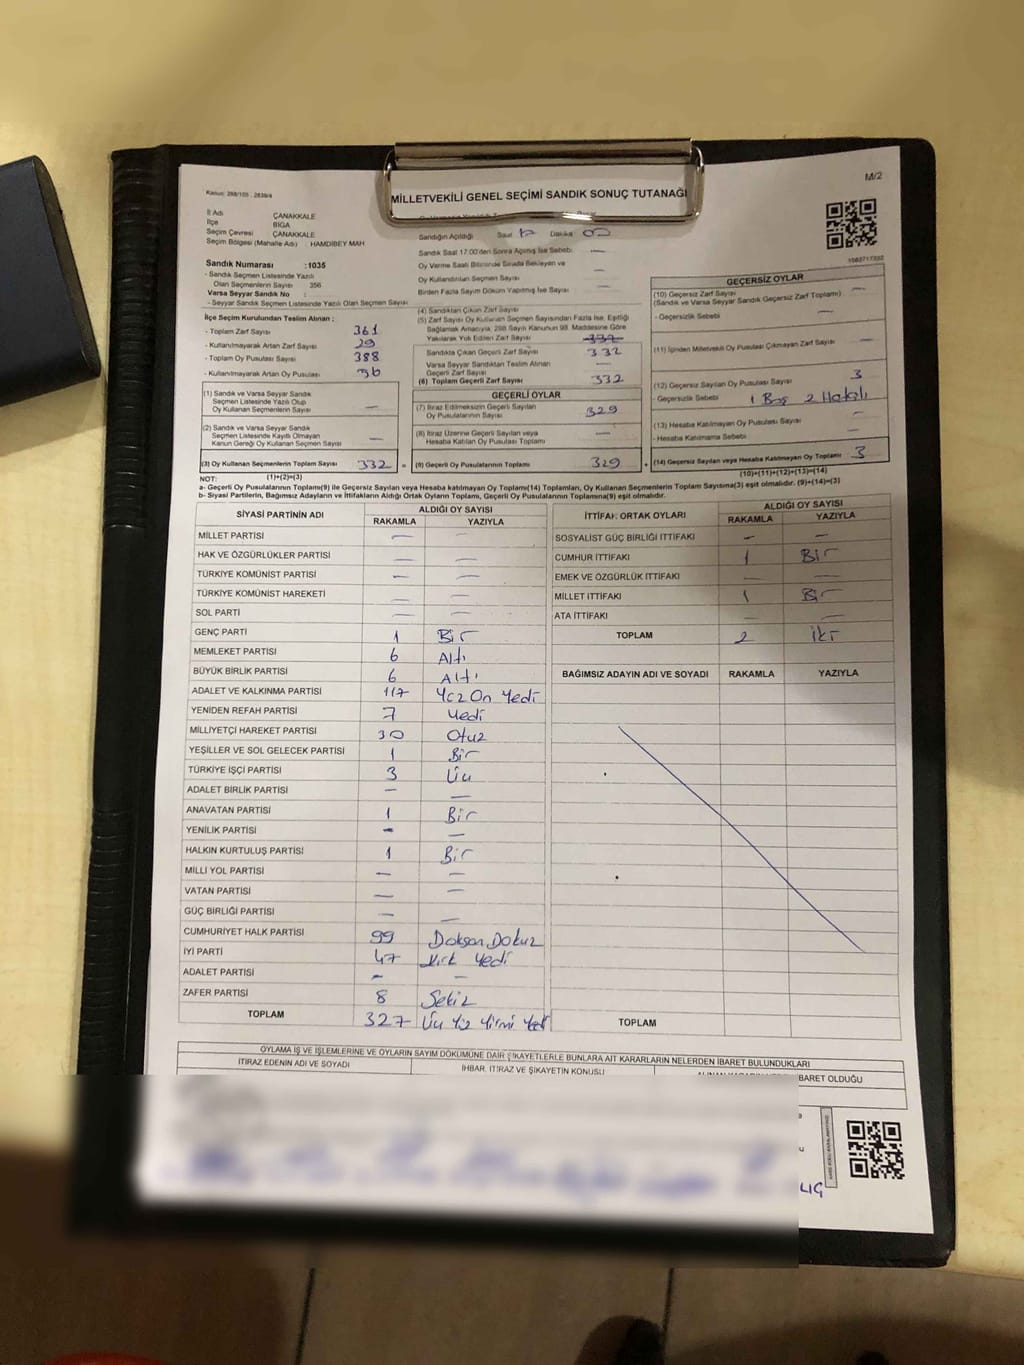 M/2
Kanun: 298/105 , 2839/4
MİLLETVEKİLİ GENEL SEÇİMİ SANDIK SONUÇ TUTANAĞI
İl Adı ÇANAKKALE
İlçe BİGA
Seçim Çevresi ÇANAKKALE
Seçim Bölgesi (Mahalle Adı) : HAMDİBEY MAH
Sandık Numarası :1035
- Sandık Seçmen Listesinde Yazılı
Olan Seçmenlerin Sayısı 356
Varsa Seyyar Sandık No :
- Seyyar Sandık Seçmen Listesinde Yazılı Olan Seçmen Sayısı
İlçe Seçim Kurulundan Teslim Alınan ;
- Toplam Zarf Sayısı 361
- Kullanılmayarak Artan Zarf Sayısı 29
- Toplam Oy Pusulası Sayısı 388
- Kullanılmayarak Artan Oy Pusulası
(1) Sandık ve Varsa Seyyar Sandık
Seçmen Listesinde Yazılı Olup
Oy Kullanan Seçmenlerin Sayısı —
(2) Sandık ve Varsa Seyyar Sandık
Seçmen Listesinde Kayıtlı Olmayan
Kanun Gereği Oy Kullanan Seçmen Sayısı —
(3) Oy Kullanan Seçmenlerin Toplam Sayısı 332
(1)+(2)=(3)
Sandığın Açıldığı Saat Dakika
Sandık Saat 17:00'den Sonra Açılmış İse Sebebi: —
Oy Verme Saati Bitiminde Sırada Bekleyen ve
Oy Kullandırılan Seçmen Sayısı —
Birden Fazla Sayım Döküm Yapılmış İse Sayısı —
(4) Sandıktan Çıkan Zarf Sayısı
(5) Zarf Sayısı Oy Kullanan Seçmen Sayısından Fazla İse, Eşitliği
Sağlamak Amacıyla, 298 Sayılı Kanunun 98. Maddesine Göre
Yakılarak Yok Edilen Zarf Sayısı 332
Sandıkta Çıkan Geçerli Zarf Sayısı 332
Varsa Seyyar Sandıktan Teslim Alınan
Geçerli Zarf Sayısı —
(6) Toplam Geçerli Zarf Sayısı 332
GEÇERLİ OYLAR
(7) İtiraz Edilmeksizin Geçerli Sayılan
Oy Pusulalarının Sayısı 329
(8) İtiraz Üzerine Geçerli Sayılan veya
Hesaba Katılan Oy Pusulası Toplamı —
= (9) Geçerli Oy Pusulalarının Toplamı 329
GEÇERSİZ OYLAR
(10) Geçersiz Zarf Sayısı
(Sandık ve Varsa Seyyar Sandık Geçersiz Zarf Toplamı)
- Geçersizlik Sebebi —
(11) İçinden Milletvekili Oy Pusulası Çıkmayan Zarf Sayısı —
(12) Geçersiz Sayılan Oy Pusulası Sayısı 3
- Geçersizlik Sebebi 1 Boş 2 Hatalı
(13) Hesaba Katılmayan Oy Pusulası Sayısı —
- Hesaba Katılmama Sebebi —
+ (14) Geçersiz Sayılan veya Hesaba Katılmayan Oy Toplamı 3
(10)+(11)+(12)+(13)=(14)
NOT:
a- Geçerli Oy Pusulalarının Toplamı(9) ile Geçersiz Sayılan veya Hesaba Katılmayan Oy Toplamı(14) Toplamları, Oy Kullanan Seçmenlerin Toplam Sayısına(3) eşit olmalıdır. (9)+(14)=(3)
b- Siyasi Partilerin, Bağımsız Adayların ve İttifakların Aldığı Ortak Oyların Toplamı, Geçerli Oy Pusulalarının Toplamına(9) eşit olmalıdır.
SİYASİ PARTİNİN ADI ALDIĞI OY SAYISI
RAKAMLA YAZIYLA
MİLLET PARTİSİ — —
HAK VE ÖZGÜRLÜKLER PARTİSİ — —
TÜRKİYE KOMÜNİST PARTİSİ — —
TÜRKİYE KOMÜNİST HAREKETİ — —
SOL PARTİ — —
GENÇ PARTİ 1 Bir
MEMLEKET PARTİSİ 6 Altı
BÜYÜK BİRLİK PARTİSİ 6 Altı
ADALET VE KALKINMA PARTİSİ 117 Yüz On Yedi
YENİDEN REFAH PARTİSİ 7 Yedi
MİLLİYETÇİ HAREKET PARTİSİ 30 Otuz
YEŞİLLER VE SOL GELECEK PARTİSİ 1 Bir
TÜRKİYE İŞÇİ PARTİSİ 3 Üç
ADALET BİRLİK PARTİSİ — —
ANAVATAN PARTİSİ 1 Bir
YENİLİK PARTİSİ — —
HALKIN KURTULUŞ PARTİSİ 1 Bir
MİLLİ YOL PARTİSİ — —
VATAN PARTİSİ — —
GÜÇ BİRLİĞİ PARTİSİ — —
CUMHURİYET HALK PARTİSİ 99 Doksan Dokuz
İYİ PARTİ 47 Kırk Yedi
ADALET PARTİSİ — —
ZAFER PARTİSİ 8 Sekiz
TOPLAM 327 Üç Yüz Yirmi Yedi
İTTİFAK ORTAK OYLARI ALDIĞI OY SAYISI
RAKAMLA YAZIYLA
SOSYALİST GÜÇ BİRLİĞİ İTTİFAKI — —
CUMHUR İTTİFAKI 1 Bir
EMEK VE ÖZGÜRLÜK İTTİFAKI — —
MİLLET İTTİFAKI 1 Bir
ATA İTTİFAKI — —
TOPLAM 2 İki
BAĞIMSIZ ADAYIN ADI VE SOYADI RAKAMLA YAZIYLA
TOPLAM
OYLAMA İŞ VE İŞLEMLERİNE VE OYLARIN SAYIM DÖKÜMÜNE DAİR ŞİKAYETLERLE BUNLARA AİT KARARLARIN NELERDEN İBARET BULUNDUKLARI
İTİRAZ EDENİN ADI VE SOYADI
İHBAR, İTİRAZ VE ŞİKAYETİN KONUSU
BARET OLDUĞU